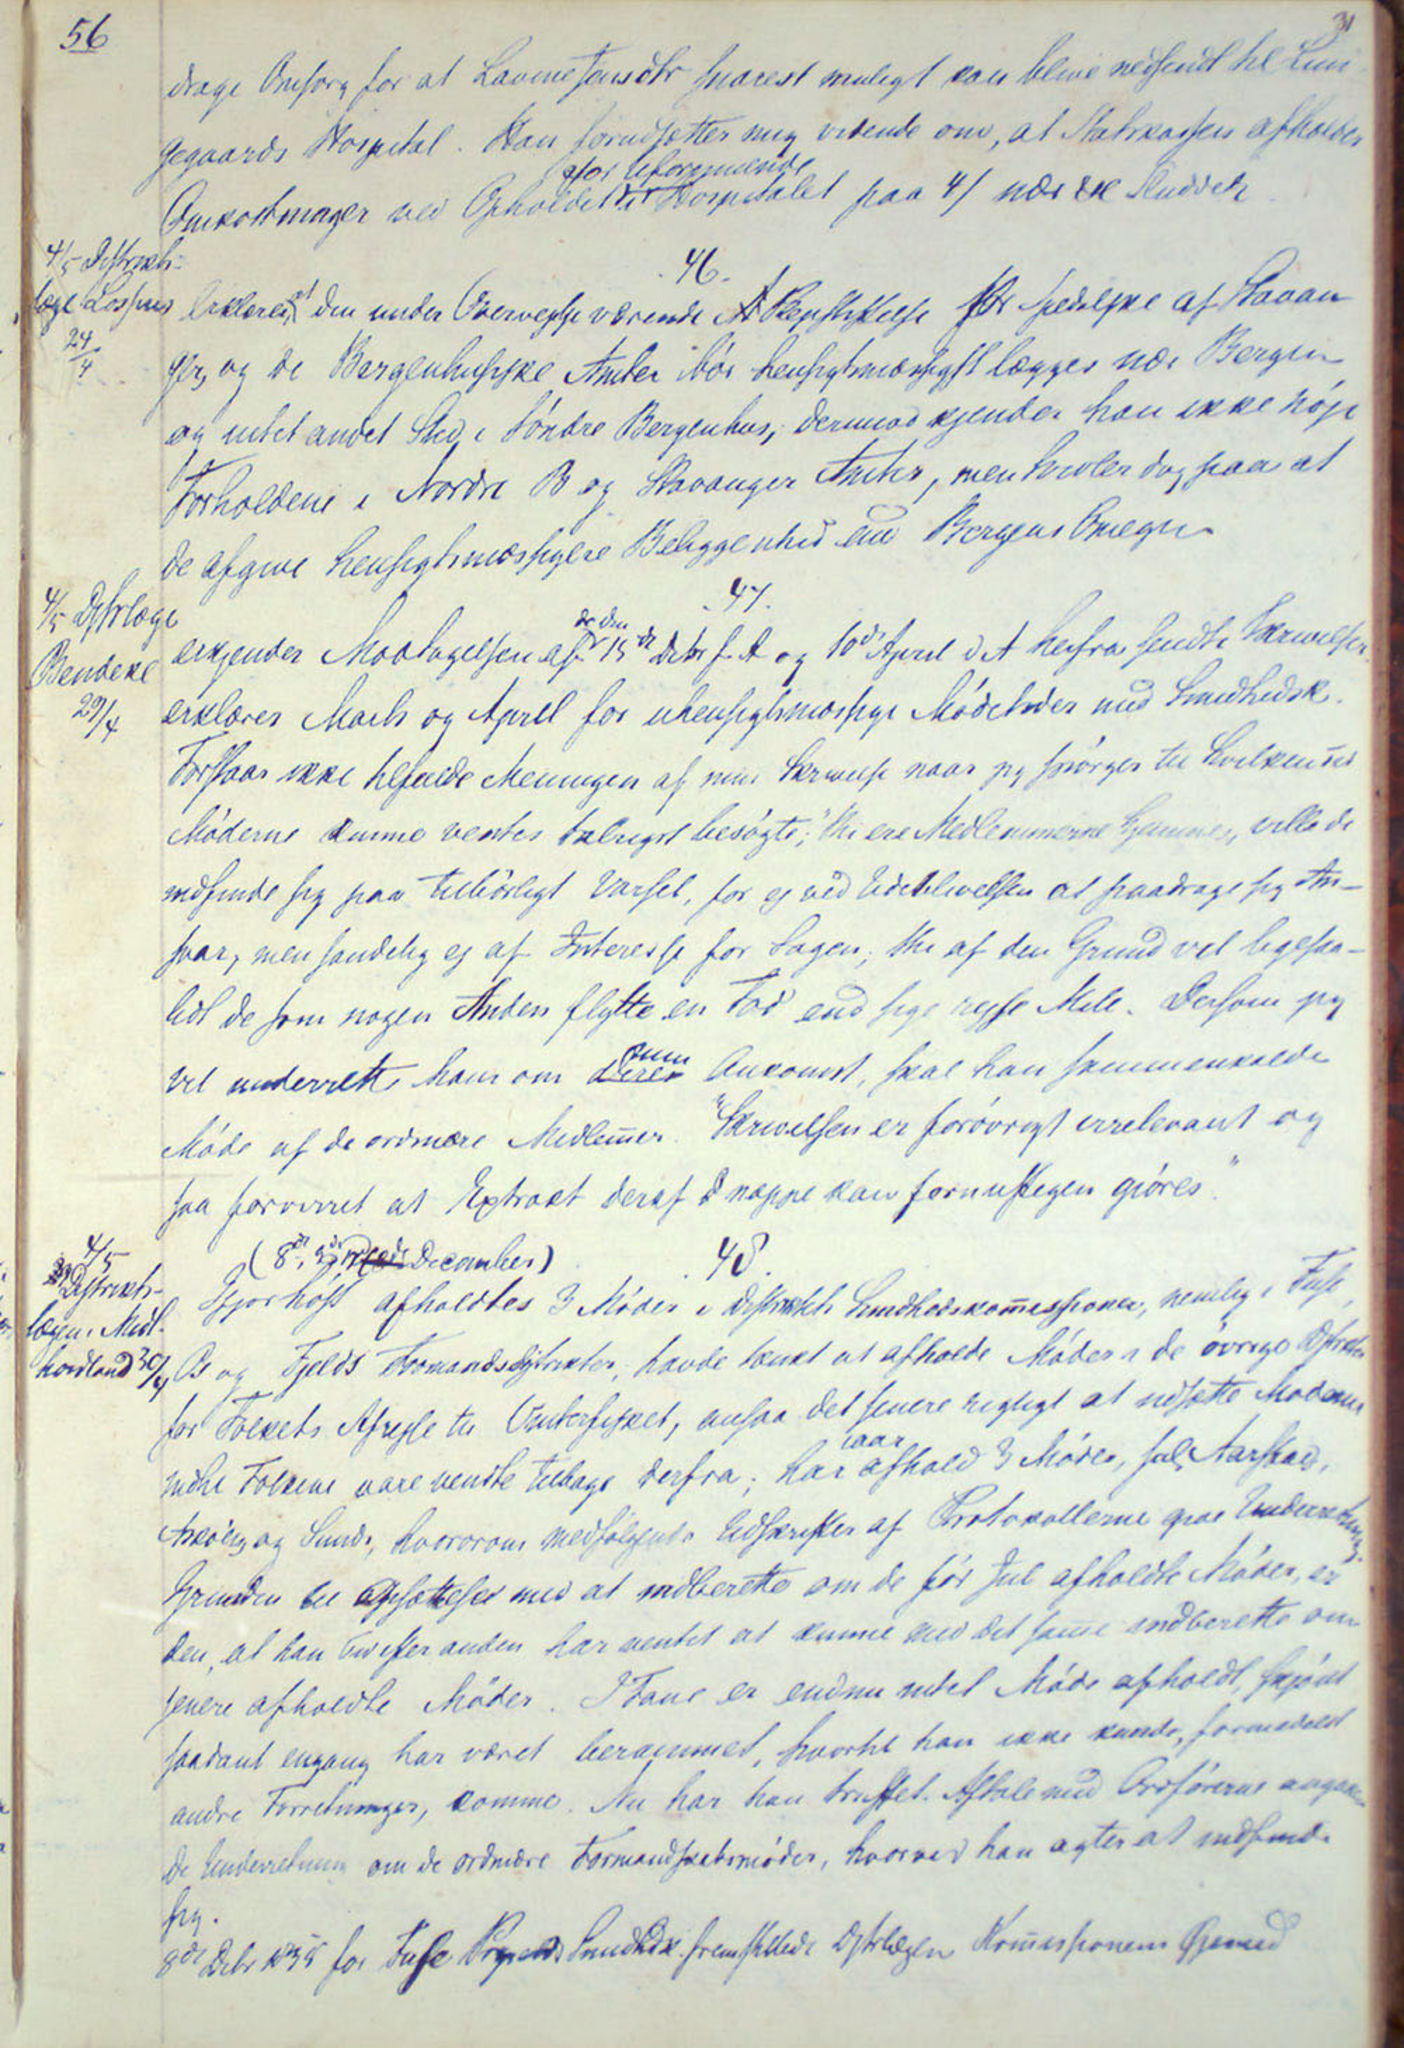 56
31
drage Omsorg for at Lavine Jensdtr snarest muligt kan blive nedsendt til Lun
gegaards Hospital. Han forudsætter mig vidende om, at Statskassen afholder
for uformuende
Omkostninger ved Opholdet i Hospitalet paa 4/ nær
46.
4/5 Distrikts-
læge
24/4
erklærer, at den under Overveielse værende for spedalske af Stavan
ger, og de Bergenhusiske Amter bør hensigtsmæssigst lægges nær Bergen
og intet andet Sted i Søndre Bergenhus, derimod kjender han ikke nøje
Forholdene i Nordre B og Stavanger Amter, men tvivler dog paa at
de afgive hensigtsmæssigere Beliggenhed end Bergens Omegn
47.
4/5 Distrlæge
Bendeke
29/4
de den
erkjender Modtagelsen af 15de Debr f. A og 10de April d A herfra sendte Skrivelser,
erklærer Marts og April for uhensigtsmæssige Mødetider med Sundhedsk.
Forstaar ikke tilfulde Meningen af min Skrivelse naar jeg spørger til hvilken Tid
Møderne kunne ventes talrigst besøgte; "thi ere Medlemmerne hjemme, ville de
indfinde sig paa tilbørligt Varsel, for ej ved Udeblivelsen at paadrage sig An-
svar, men sandelig ej af Interesse for Sagen; thi af den Grund vil ligesaa-
lidt de som nogen Anden flytte en Fod end sige rejse Mile. Dersom jeg
min
vil underrette ham om deres Ankomst, skal han sammenkalde
Møde af de ordinære Medlemmer. "Skrivelsen er forøvrigt irrelevant og
saa forvirret at Extrakt deraf neppe kan fornuftigen gjøres".
(8de, December)
48.
4/5
Distrikts-
lægen i Mid-
hordland 30/4
Ifjorhøst afholdtes 3 Møder i Distriktets Sundhedskommissioner, nemlig i Fuse,
Os og Fjelds Formandsdistrikter, havde tænkt at afholde Møder i de øvrige Distrikter
for Folkets Afrejse til Vinterfisket, ansaa det senere rigtigt at udsætte Møderne
iaar
indtil Folkene vare vendte tilbage derfra; har afholdt 3 Møder, Aarstad,
Askøen og Sund, hvorom medfølgende Udskrifter af Protokollerne give Underretning.
Grunden til Opsættelsen med at indberette om de før Jul afholdte Møder, er
den, at han har ventet at kunne med det samme indberette om
senere afholdte Møder. I Fane er endnu intet Møde afholdt, skjønt
saadant engang har været berammet, hvortil han ikke kunde, formedelst
andre Forretninger, komme. Nu har han truffet Aftale med Ordførerne angaaen
de Underretning om de ordinære Formandskabsmøder, hvorved han agter at indfinde
sig.
8de Debr for Fuse Sundhdsk. fremstillede Distrlægen Kommissionens Øjemed